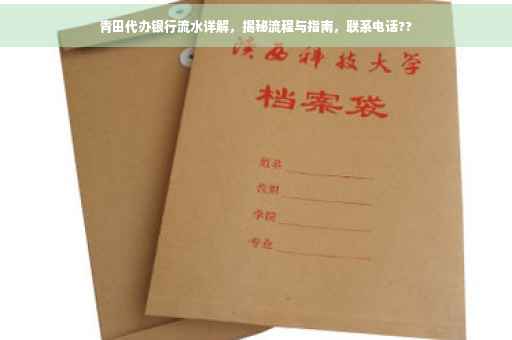 青田代办银行流水详解，揭秘流程与指南，联系电话??
陕西科技大学
档案袋
姓名
学院
专业